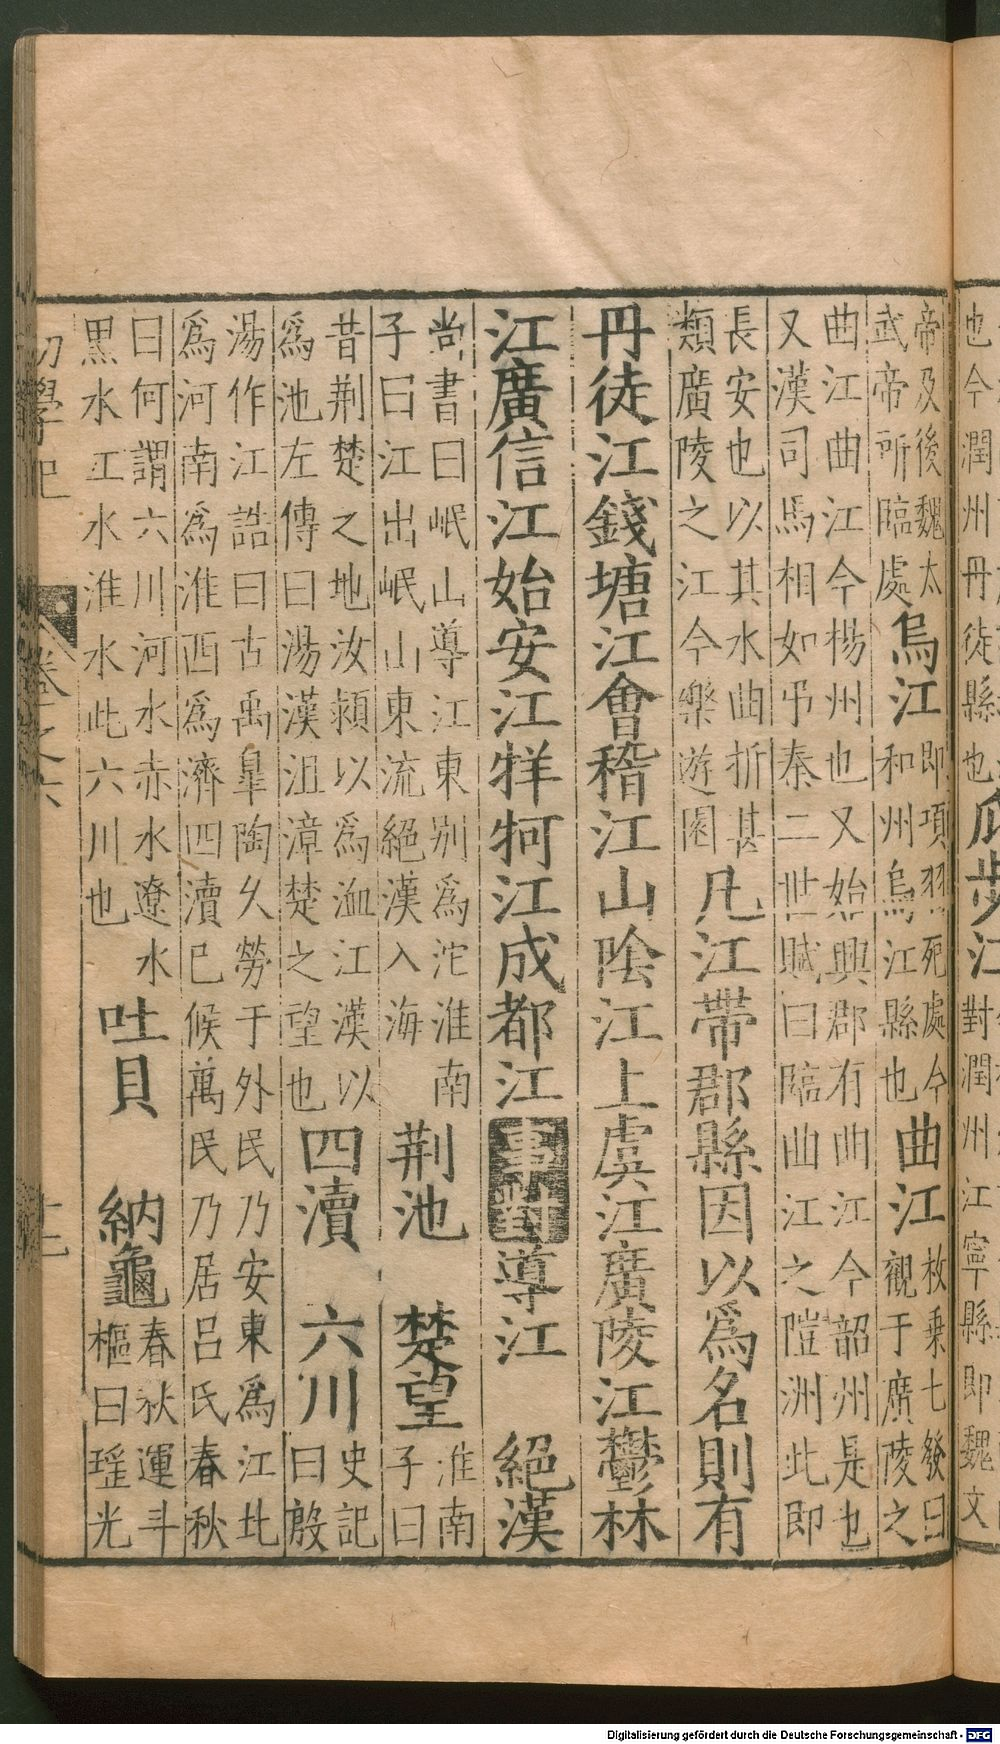 也今潤州丹徒縣也瓜步江對潤州江寧縣即魏文
帝及後魏太武帝所臨處烏江即項羽死處今和州烏江縣也曲江枚乗七發曰觀于廣陵之
曲江曲江今楊州也又始興郡有曲江今韶州是也又漢司馬相如弔秦二世賦曰臨曲江之隑洲此即
長安也以其水曲折甚類廣陵之江今樂遊園凡江帶郡縣因以爲名則有
丹徒江錢塘江會稽江山陰江上虞江廣陵江鬱林
江廣信江始安江牂牁江成都江事對導江 絕漢
尚書曰岷山導江東別爲沱淮南子曰江出岷山東流絕漢入海荆池 楚望淮南子曰
昔荆楚之地汝潁以爲洫江漢以爲池左傳曰湯漢沮漳楚之望也四瀆 六川史記曰殷
湯作江誥曰古禹臯陶久勞于外民乃安東爲江北爲河南爲淮西爲濟四瀆已候萬民乃居吕氏春秋
曰何謂六川河水赤水遼水黒水工水淮水此六川也吐貝 納龜春秋運斗樞曰瑤光
初學記 卷之六 十二
Digitalisierung gefördert durch die Deutsche Forschungsgemeinschaft - DFG